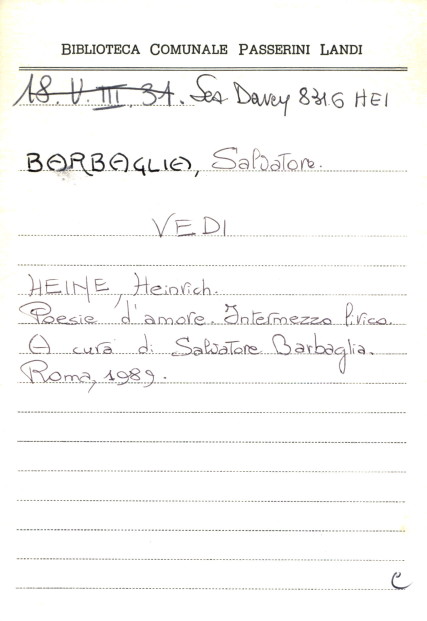 BIBLIOTECA COMUNALE PASSERINI LANDI
18. V. III. 31. Sez Dewey 831.6 HEI
BARBAGLIA, Salvatore.
VEDI
HEINE, Heinrich.
Poesie d'amore. Intermezzo lirico.
A cura di Salvatore Barbaglia.
Roma, 1989.
C